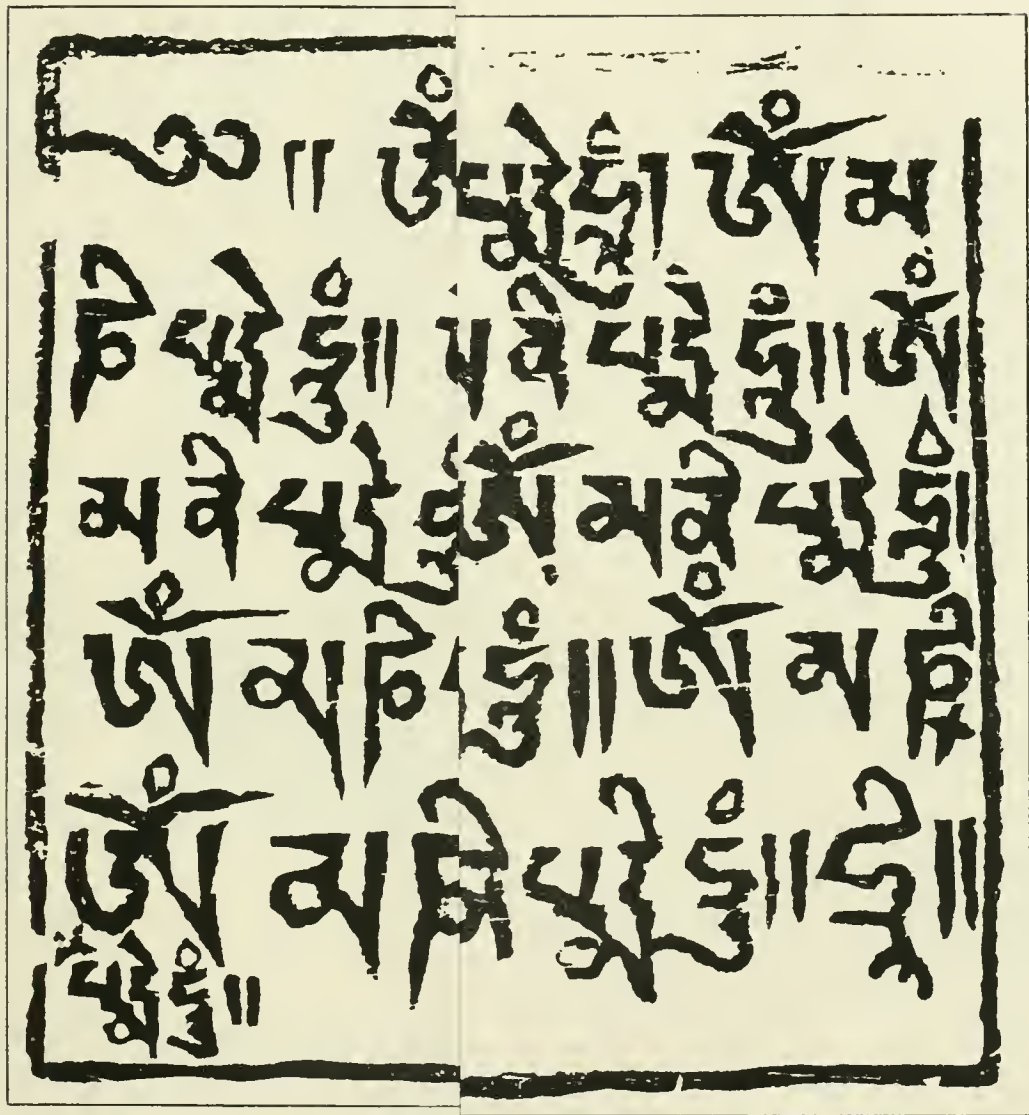 ༄༅།། ཨོཾ པདྨེ ཧུཾ། ཨོཾ མ
ཎི པདྨེ ཧུཾ།། ནི པདྨེ ཧུཾ།། ཨོཾ
མ ནི པདྨེ ཨོཾ མ ནི པདྨེ ཧུཾ།
ཨོཾ མ ཎི ཧུཾ།། ཨོཾ མ ཎི
ཨོཾ མ ཎི པདྨེ ཧུཾ།། ཧྲི།།
པདྨེ ཧུཾ།།